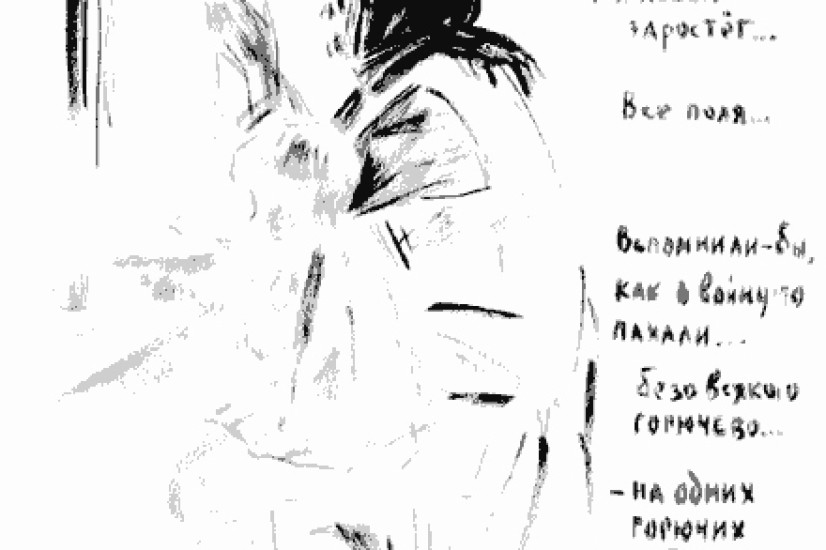 зАРОСТЁТ...
Все поля...
Вспомнили-бы,
как в войну-то
пахали...
безо всякого
горючево...
- на одних
горючих